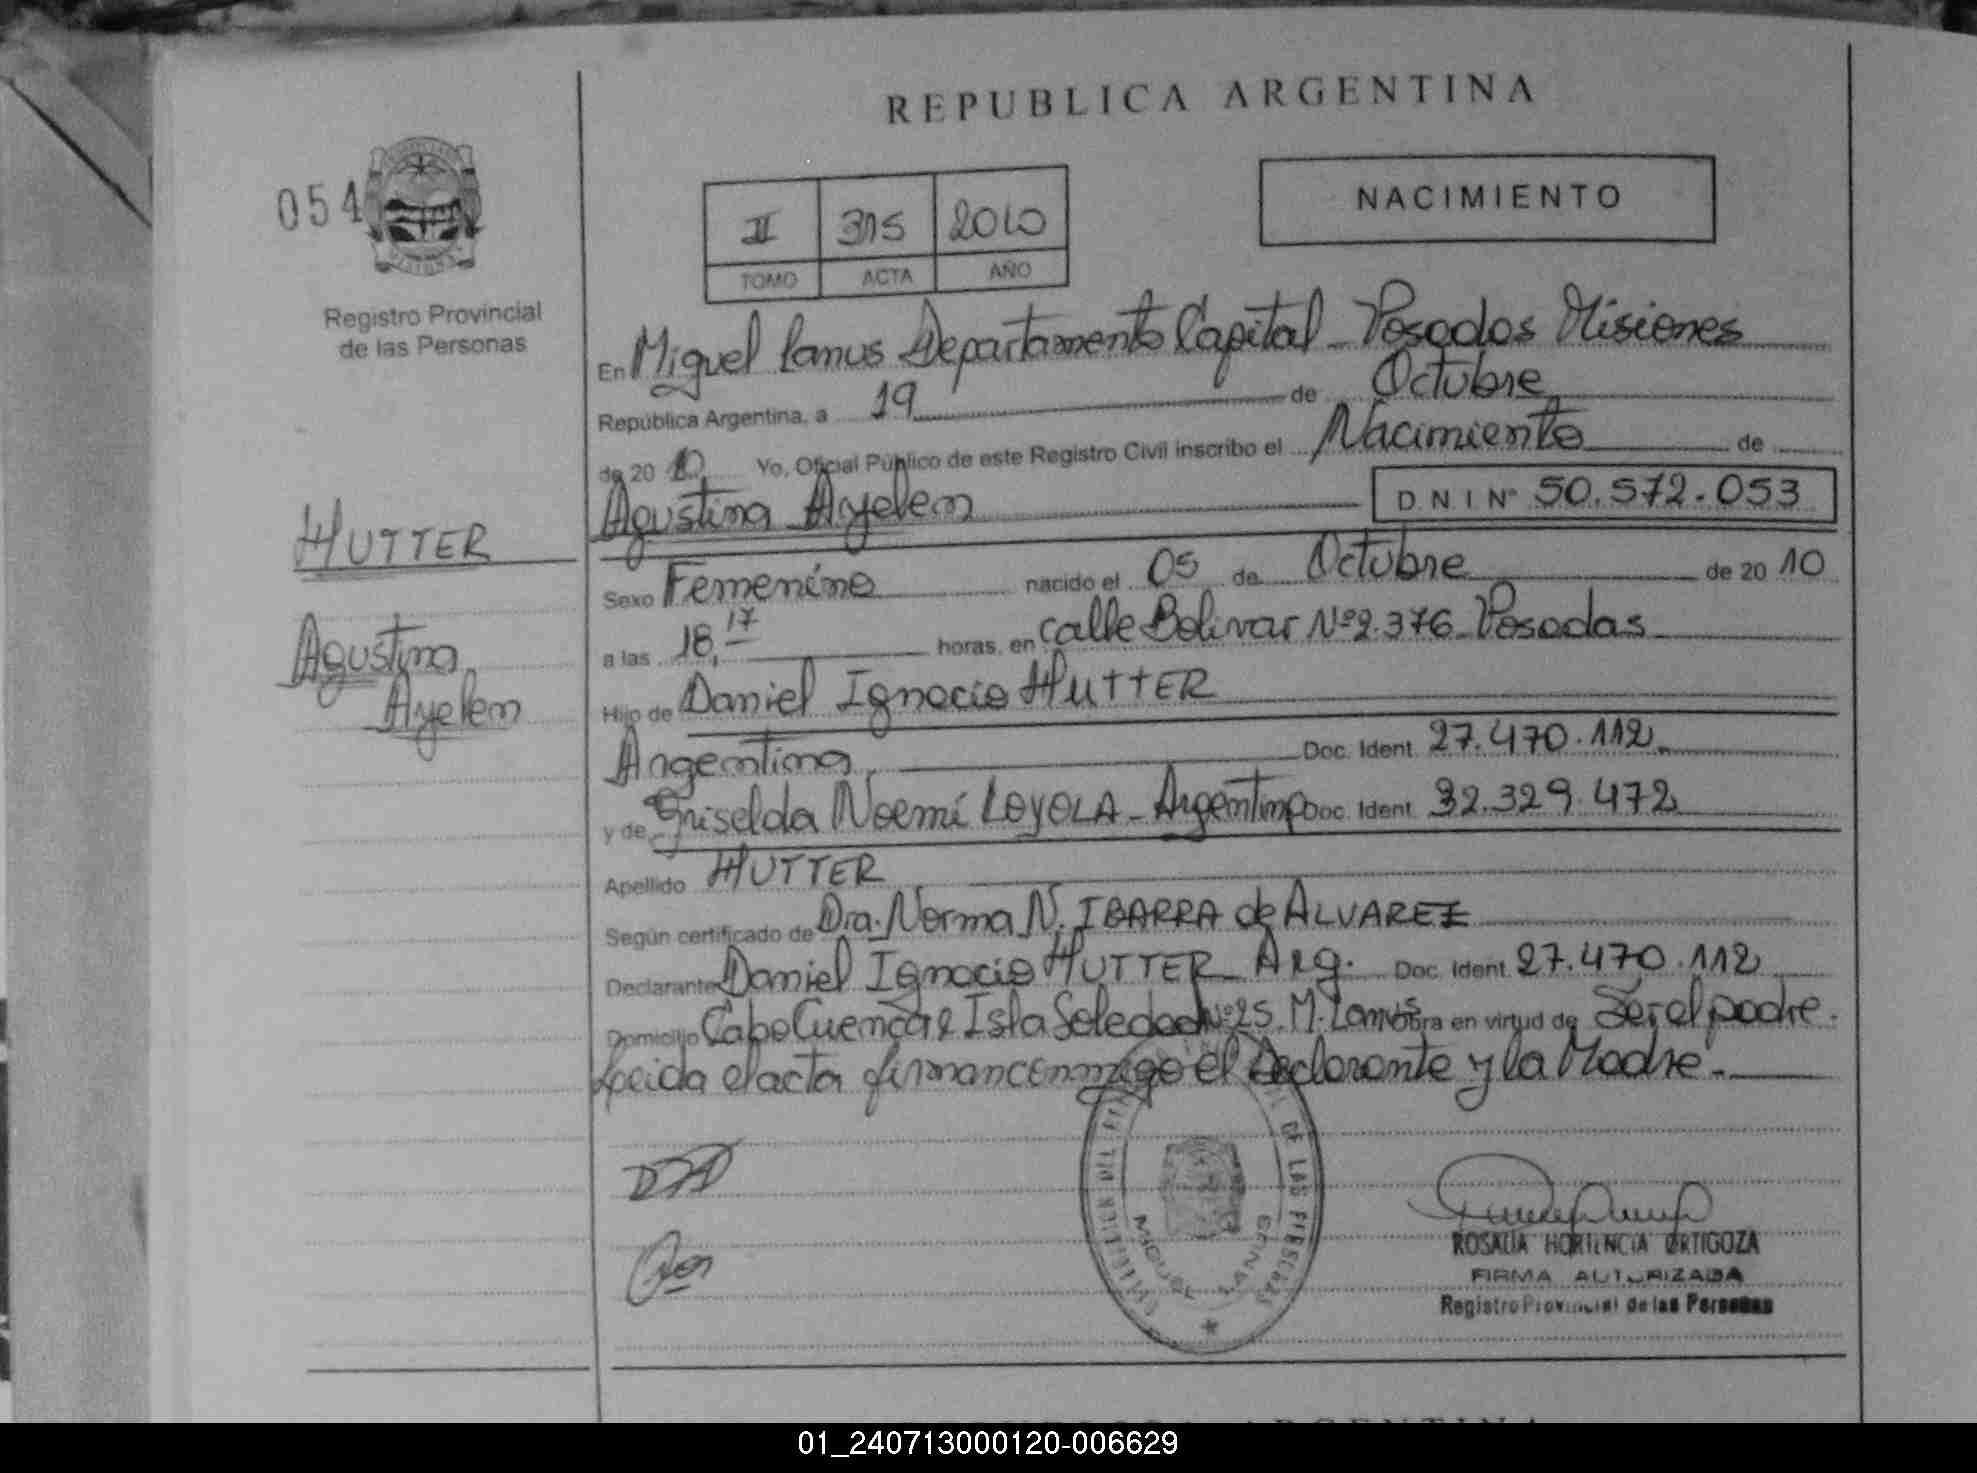 REPUBLICA ARGENTINA
054
NACIMIENTO
II 315 2010
TOMO ACTA AÑO
Registro Provincial
de las Personas
En Miguel Lanus Departamento Capital - Posadas Misiones
República Argentina, a 19 de Octubre
de 20 10 Yo, Oficial Público de este Registro Civil inscribo el Nacimiento de
Agustina Ayelem D.N.I. Nº 50.572.053
HUTTER
Agustina
Ayelem
Sexo Femenino nacido el 05 de Octubre de 20 10
a las 18,17 horas, en calle Bolivar Nº 2.376 - Posadas
Hijo de Daniel Ignacio HUTTER
Argentina Doc. Ident. 27.470.112
y de Griselda Noemí LOYOLA - Argentina Doc. Ident. 32.329.472
Apellido HUTTER
Según certificado de Dra. Norma N. IBARRA de ALVAREZ
Declarante Daniel Ignacio HUTTER Arg. Doc. Ident. 27.470.112
Domicilio Cabo Cuenca e Isla Soledad Nº 25. M. Lanus obra en virtud de Ser el padre.
Leida el acta firman conmigo el Declarante y la Madre.-
DE LAS PERSONAS
MIGUEL LANUS
ROSALIA HORTENCIA ORTIGOZA
FIRMA AUTORIZADA
Registro Provincial de las Personas
01_240713000120-006629